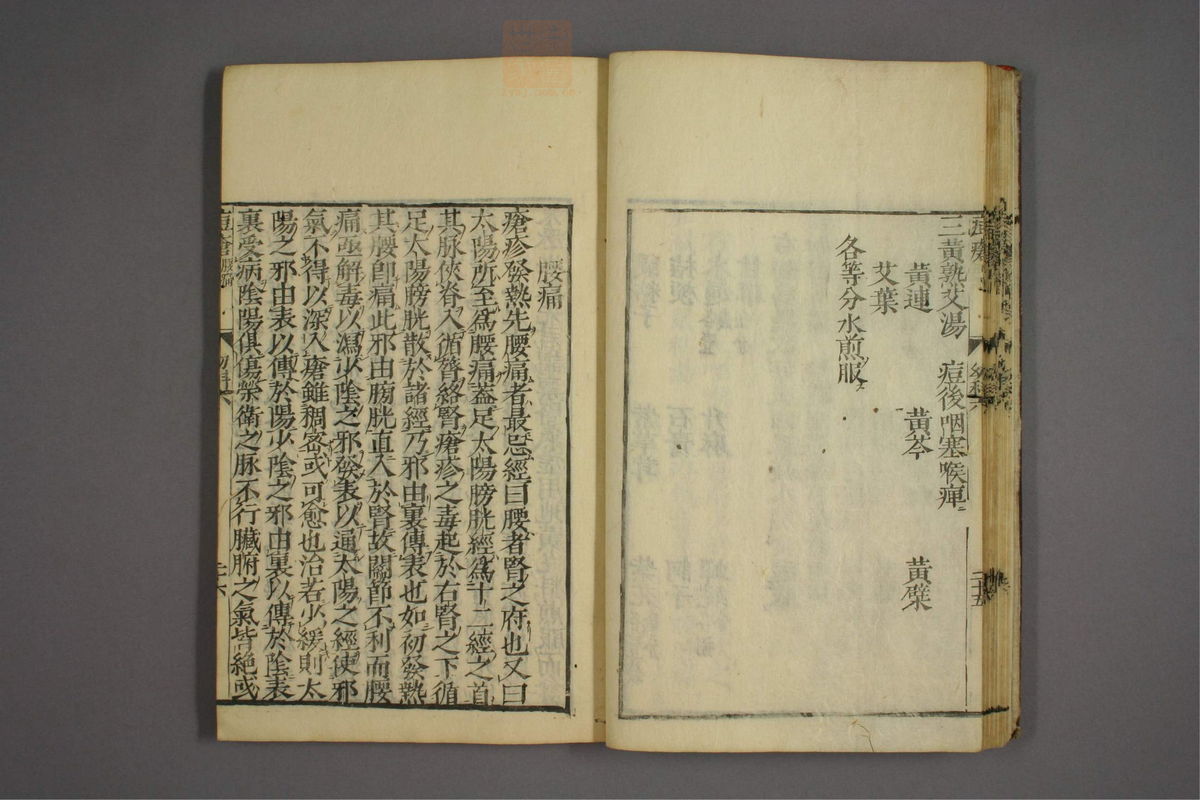 三黃熟艾湯　痘後咽塞喉痺
黃連　黃芩　黃檗
艾葉
各等分水煎服
腰痛
瘡疹發熱先腰痛者最忌經曰腰者腎之府也又曰
太陽所至爲腰痛蓋足太陽膀胱經爲十二經之首
其脉俠脊入循膂絡腎瘡疹之毒起於右腎之下循
足太陽膀胱散於諸經乃邪由裏傳表也如初發熱
其腰卽痛此邪由膀胱直入於腎故關節不利而腰
痛亟解毒以瀉少陰之邪發表以通太陽之經使邪
氣不得以深入瘡雖稠密或可愈也治若少緩則太
陽之邪由表以傳於陽少陰之邪由裏以傳於陰表
裏受病陰陽俱傷榮衛之脉不行臟腑之氣皆絶或
痘瘡腰痛　幼科六　二十六